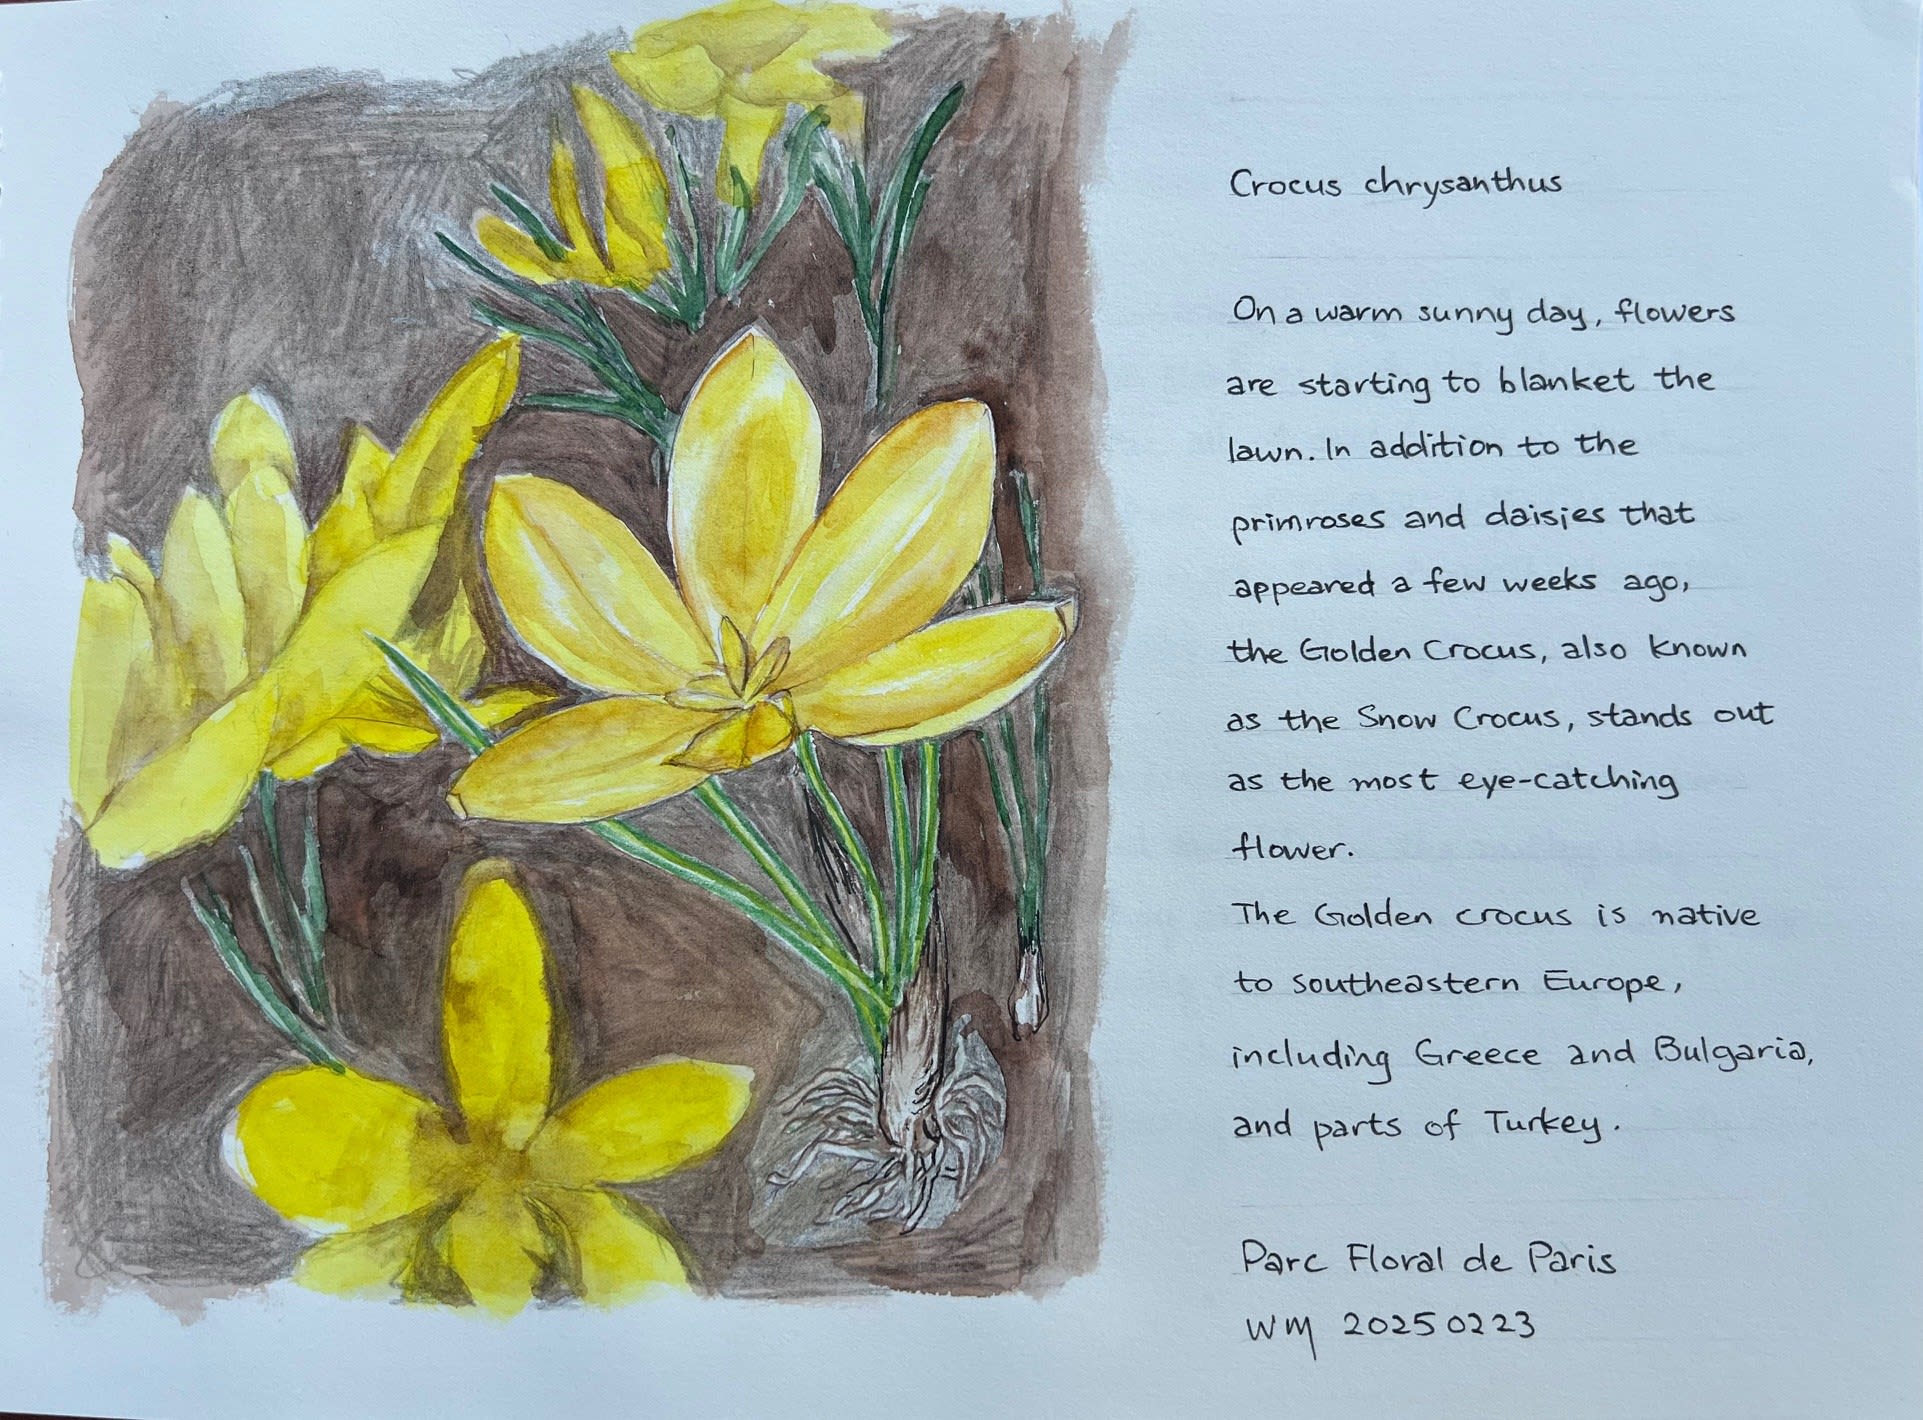 Crocus chrysanthus
On a warm sunny day, flowers
are starting to blanket the
lawn. In addition to the
primroses and daisies that
appeared a few weeks ago,
the Golden Crocus, also known
as the Snow Crocus, stands out
as the most eye-catching
flower.
The Golden crocus is native
to southeastern Europe,
including Greece and Bulgaria,
and parts of Turkey.
Parc Floral de Paris
WM 20250223